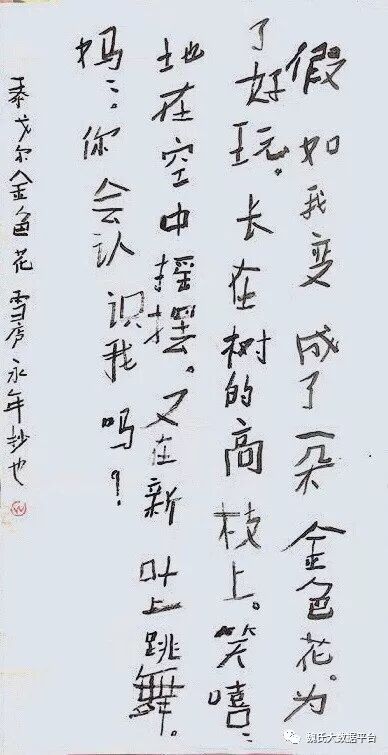 假如我变成了一朵金色花。为
了好玩。长在树的高枝上。笑嘻:
地在空中摇摆。又在新叶上跳舞。
妈:。你会认识我吗?
泰戈尔金色花 雪庐永年抄也
魏氏大数据平台